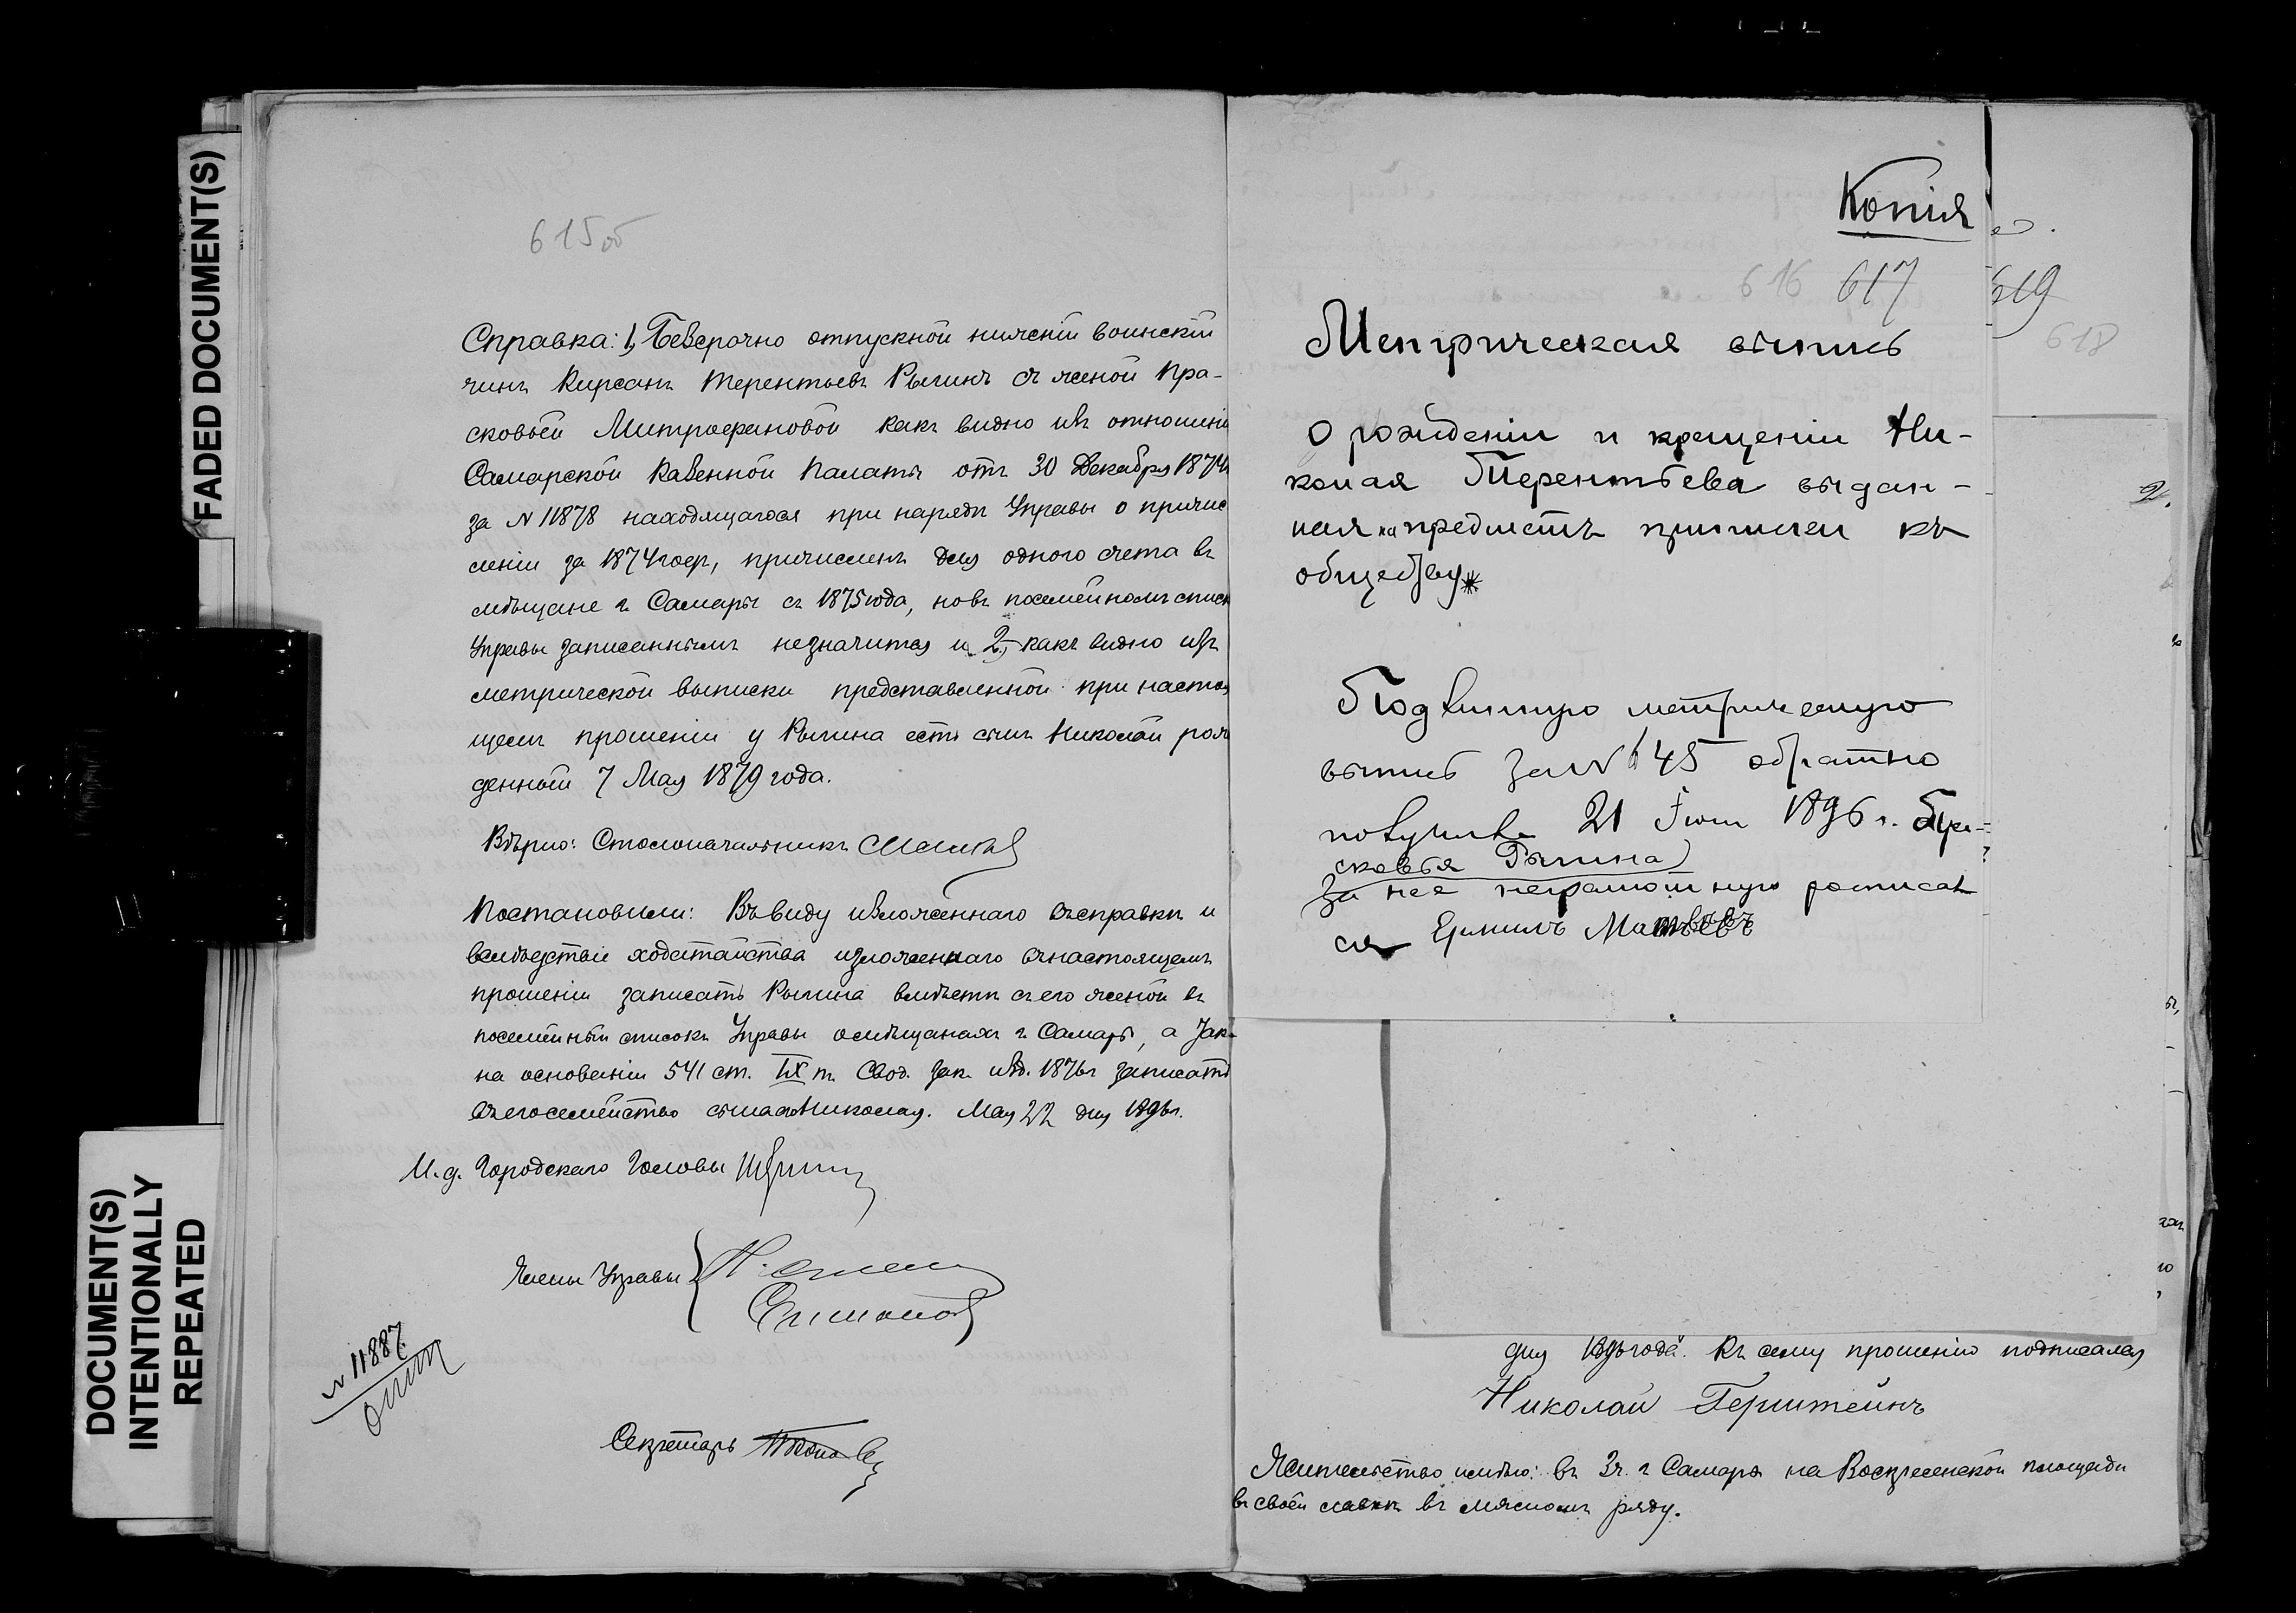 FADED DOCUMENT(S)
DOCUMENT(S)
INTENTIONALLY
REPEATED
615 об
Справка: 1, Безсрочно отпускной нижній воинскій
чинъ Кирсанъ Терентьевъ Рыгинъ съ женой Пра-
сковьей Митрофановой какъ видно изъ отношенія
Самарской Казенной Палаты отъ 30 Декабря 1874
за N 11878 находящагося при нарядѣ Управы о причис
леніи за 1874 годъ, причисленъ для одного счета въ
мѣщане г. Самары съ 1875 года, но въ посемейномъ списк
Управы записаннымъ незначится и 2, какъ видно изъ
метрической выписки представленной при настоя
щемъ прошеніи у Рыгина есть сынъ Николай рож
денный 7 Мая 1879 года.
Вѣрно: Столоначальникъ
Постановили: Въ виду изложеннаго въ справкѣ и
вслѣдствіе ходатайства изложеннаго въ настоящемъ
прошеніи записать Рыгина вмѣстѣ съ его женой въ
посемейный списокъ Управы о мѣщанахъ г. Самары, а
на основаніи 541 ст. IX т. Свод. Зак. изд. 1876 г записать
въ его семейство сына Николая. Мая 22 дня 1896 г.
И. д. Городскаго Головы
Члены Управы
N 11887
Секретарь
Копія
616 617
Метрическая выпись
о рожденіи и крещеніи Ни-
колая Терентьева выдан-
ная на предметъ приписки къ
обществу
Подлинную метрическую
выпись за N 645 обратно
получила 21 Іюня 1896 г. Пра-
сковья Рыгина
За нее неграмотную росписал
ся Ермилъ Матвѣевъ
619
618
2.
дня 1896 года. Къ сему прошенію подписался
Николай Герштейнъ
Жительство имѣю: въ 3 ч. г Самары на Воскресенской площади
въ своей лавкѣ въ мясномъ ряду.